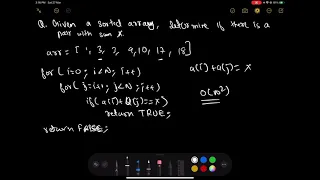 Q. Given a sorted array, determine if there is a
pair with sum x.
arr = [ 1, 3, 7, 9, 10, 17, 18]
for (i=0; i<N; i++)
for (j=i+1; j<N; j++)
if (a[i]+a[j]==x)
return TRUE;
return FALSE;
a[i]+a[j]=x
O(n²)